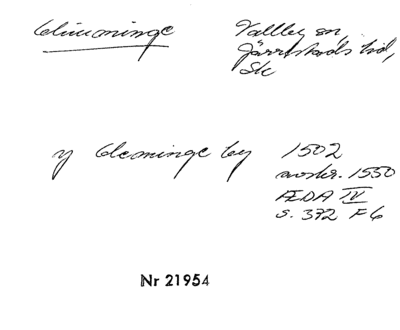 Glimminge Vallby sn,
Järrestads hd,
Sk
y Gleminge by 1502
avskr. 1550
ÆDA IV
s. 372 F6
Nr 21954